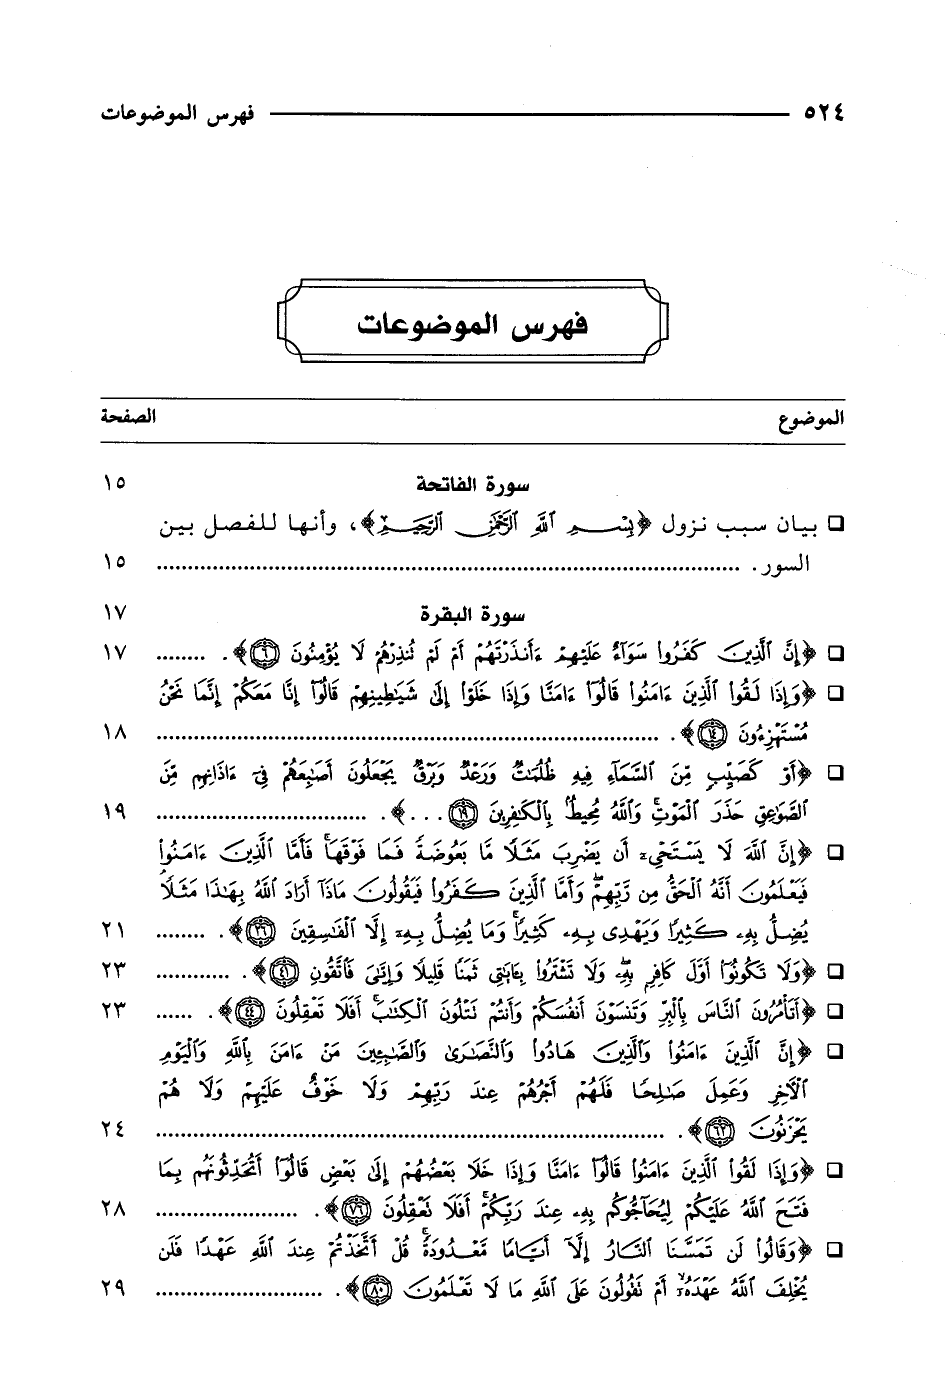 ٥٢٤ فهرس الموضوعات
فهرس الموضوعات
الموضوع الصفحة
سورة الفاتحة ١٥
❑ بيان سبب نزول ﴿بِسْمِ ٱللَّهِ ٱلرَّحْمَٰنِ ٱلرَّحِيمِ﴾، وأنها للفصل بين
السور. ........ ١٥
سورة البقرة ١٧
❑ ﴿إِنَّ ٱلَّذِينَ كَفَرُوا۟ سَوَآءٌ عَلَيْهِمْ ءَأَنذَرْتَهُمْ أَمْ لَمْ تُنذِرْهُمْ لَا يُؤْمِنُونَ ٦﴾. ........ ١٧
❑ ﴿وَإِذَا لَقُوا۟ ٱلَّذِينَ ءَامَنُوا۟ قَالُوٓا۟ ءَامَنَّا وَإِذَا خَلَوْا۟ إِلَىٰ شَيَٰطِينِهِمْ قَالُوٓا۟ إِنَّا مَعَكُمْ إِنَّمَا نَحْنُ
مُسْتَهْزِءُونَ ١٤﴾. ........ ١٨
❑ ﴿أَوْ كَصَيِّبٍ مِّنَ ٱلسَّمَآءِ فِيهِ ظُلُمَٰتٌ وَرَعْدٌ وَبَرْقٌ يَجْعَلُونَ أَصَٰبِعَهُمْ فِىٓ ءَاذَانِهِم مِّنَ
ٱلصَّوَٰعِقِ حَذَرَ ٱلْمَوْتِ ۚ وَٱللَّهُ مُحِيطٌۢ بِٱلْكَٰفِرِينَ ١٩ ...﴾. ........ ١٩
❑ ﴿إِنَّ ٱللَّهَ لَا يَسْتَحْىِۦٓ أَن يَضْرِبَ مَثَلًا مَّا بَعُوضَةً فَمَا فَوْقَهَا ۚ فَأَمَّا ٱلَّذِينَ ءَامَنُوا۟
فَيَعْلَمُونَ أَنَّهُ ٱلْحَقُّ مِن رَّبِّهِمْ ۖ وَأَمَّا ٱلَّذِينَ كَفَرُوا۟ فَيَقُولُونَ مَاذَآ أَرَادَ ٱللَّهُ بِهَٰذَا مَثَلًا ۘ
يُضِلُّ بِهِۦ كَثِيرًا وَيَهْدِى بِهِۦ كَثِيرًا ۚ وَمَا يُضِلُّ بِهِۦٓ إِلَّا ٱلْفَٰسِقِينَ ٢٦﴾. ........ ٢١
❑ ﴿وَلَا تَكُونُوٓا۟ أَوَّلَ كَافِرٍۭ بِهِۦ ۖ وَلَا تَشْتَرُوا۟ بِـَٔايَٰتِى ثَمَنًا قَلِيلًا وَإِيَّٰىَ فَٱتَّقُونِ ٤١﴾. ........ ٢٣
❑ ﴿أَتَأْمُرُونَ ٱلنَّاسَ بِٱلْبِرِّ وَتَنسَوْنَ أَنفُسَكُمْ وَأَنتُمْ تَتْلُونَ ٱلْكِتَٰبَ ۚ أَفَلَا تَعْقِلُونَ ٤٤﴾. ...... ٢٣
❑ ﴿إِنَّ ٱلَّذِينَ ءَامَنُوا۟ وَٱلَّذِينَ هَادُوا۟ وَٱلنَّصَٰرَىٰ وَٱلصَّٰبِـِٔينَ مَنْ ءَامَنَ بِٱللَّهِ وَٱلْيَوْمِ
ٱلْـَٔاخِرِ وَعَمِلَ صَٰلِحًا فَلَهُمْ أَجْرُهُمْ عِندَ رَبِّهِمْ وَلَا خَوْفٌ عَلَيْهِمْ وَلَا هُمْ
يَحْزَنُونَ ٦٢﴾. ........ ٢٤
❑ ﴿وَإِذَا لَقُوا۟ ٱلَّذِينَ ءَامَنُوا۟ قَالُوٓا۟ ءَامَنَّا وَإِذَا خَلَا بَعْضُهُمْ إِلَىٰ بَعْضٍ قَالُوٓا۟ أَتُحَدِّثُونَهُم بِمَا
فَتَحَ ٱللَّهُ عَلَيْكُمْ لِيُحَآجُّوكُم بِهِۦ عِندَ رَبِّكُمْ ۚ أَفَلَا تَعْقِلُونَ ٧٦﴾. ........ ٢٨
❑ ﴿وَقَالُوا۟ لَن تَمَسَّنَا ٱلنَّارُ إِلَّآ أَيَّامًا مَّعْدُودَةً ۚ قُلْ أَتَّخَذْتُمْ عِندَ ٱللَّهِ عَهْدًا فَلَن
يُخْلِفَ ٱللَّهُ عَهْدَهُۥٓ ۖ أَمْ تَقُولُونَ عَلَى ٱللَّهِ مَا لَا تَعْلَمُونَ ٨٠﴾. ........ ٢٩